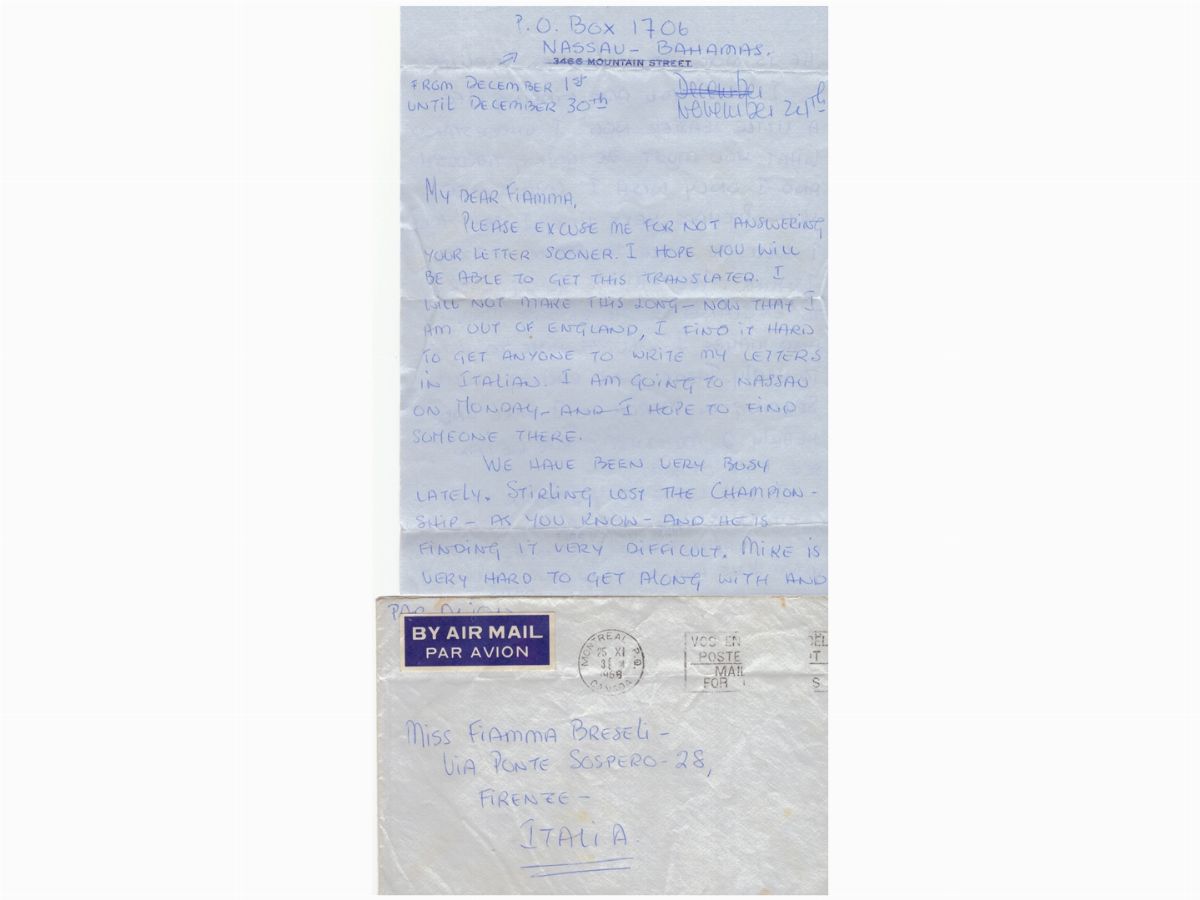 P.O. BOX 1706
NASSAU - BAHAMAS.
3466 MOUNTAIN STREET
FROM DECEMBER 1st
UNTIL DECEMBER 30th
December
November 24th
MY DEAR FIAMMA,
PLEASE EXCUSE ME FOR NOT ANSWERING
YOUR LETTER SOONER. I HOPE YOU WILL
BE ABLE TO GET THIS TRANSLATED. I
WILL NOT MAKE THIS LONG - NOW THAT I
AM OUT OF ENGLAND, I FIND IT HARD
TO GET ANYONE TO WRITE MY LETTERS
IN ITALIAN. I AM GOING TO NASSAU
ON MONDAY - AND I HOPE TO FIND
SOMEONE THERE.
WE HAVE BEEN VERY BUSY
LATELY. STIRLING LOST THE CHAMPION-
SHIP - AS YOU KNOW - AND HE IS
FINDING IT VERY DIFFICULT. MIKE IS
VERY HARD TO GET ALONG WITH AND
PAR AVION
BY AIR MAIL
PAR AVION
MONTREAL P.Q.
25 XI
1958
CANADA
VOS EN
POSTE
MAIL
FOR
MISS FIAMMA BRESELI -
VIA PONTE SOSPERO - 28,
FIRENZE -
ITALIA.